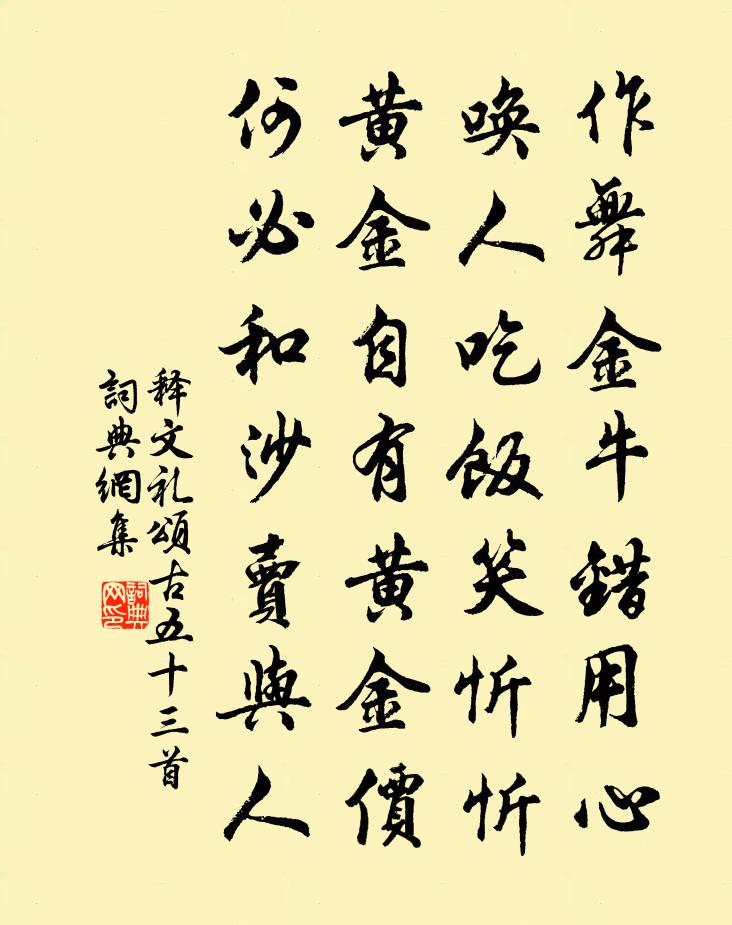 作舞金牛錯用心
喚人吃飯笑忻忻
黃金自有黃金價
何必和沙賣與人
释文礼頌古五十三首
詞典網集
詞典网印